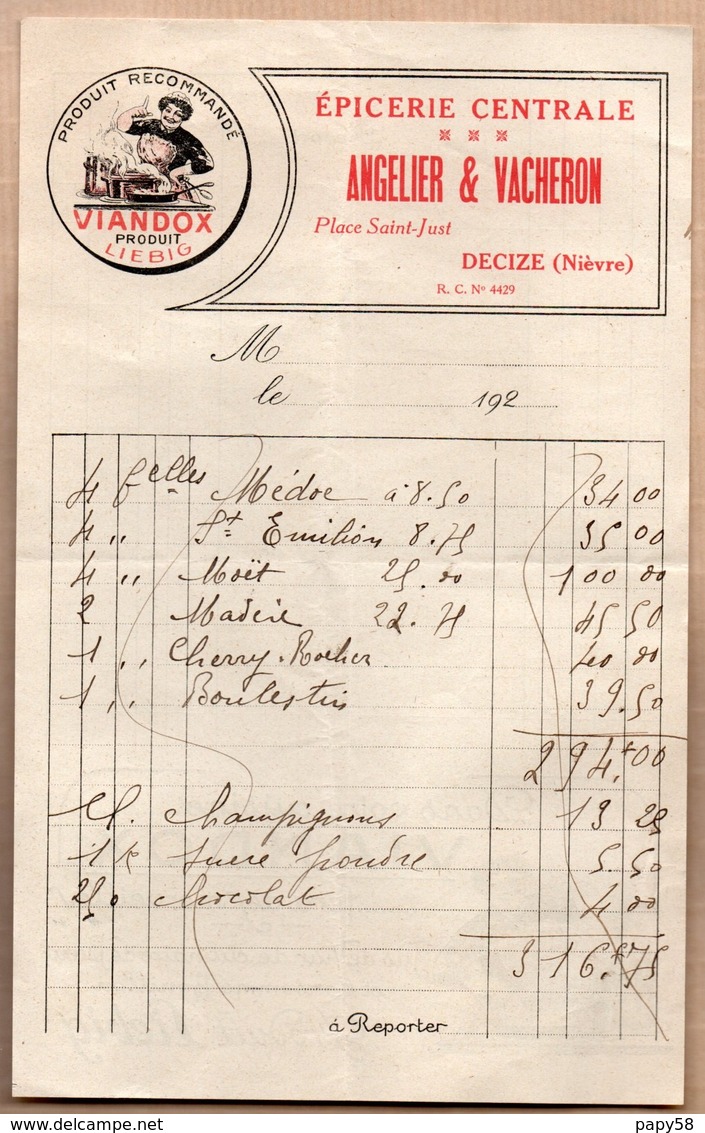 PRODUIT RECOMMANDÉ
VIANDOX
PRODUIT
LIEBIG
ÉPICERIE CENTRALE
ANGELIER & VACHERON
Place Saint-Just
DECIZE (Nièvre)
R. C. Nº 4429
M
le 192
4 belles Médoc à 8.50 34 00
4 " St Emilion 8.75 35 00
4 " Moët 25.00 100 00
2 Madère 22.75 45 50
1 " Cherry-Rocher 40 00
1 " Boulestin 39.50
294.00
Champignons 13 25
1 k sucre poudre 5.50
250 chocolat 4 00
316.75
à Reporter
papy58